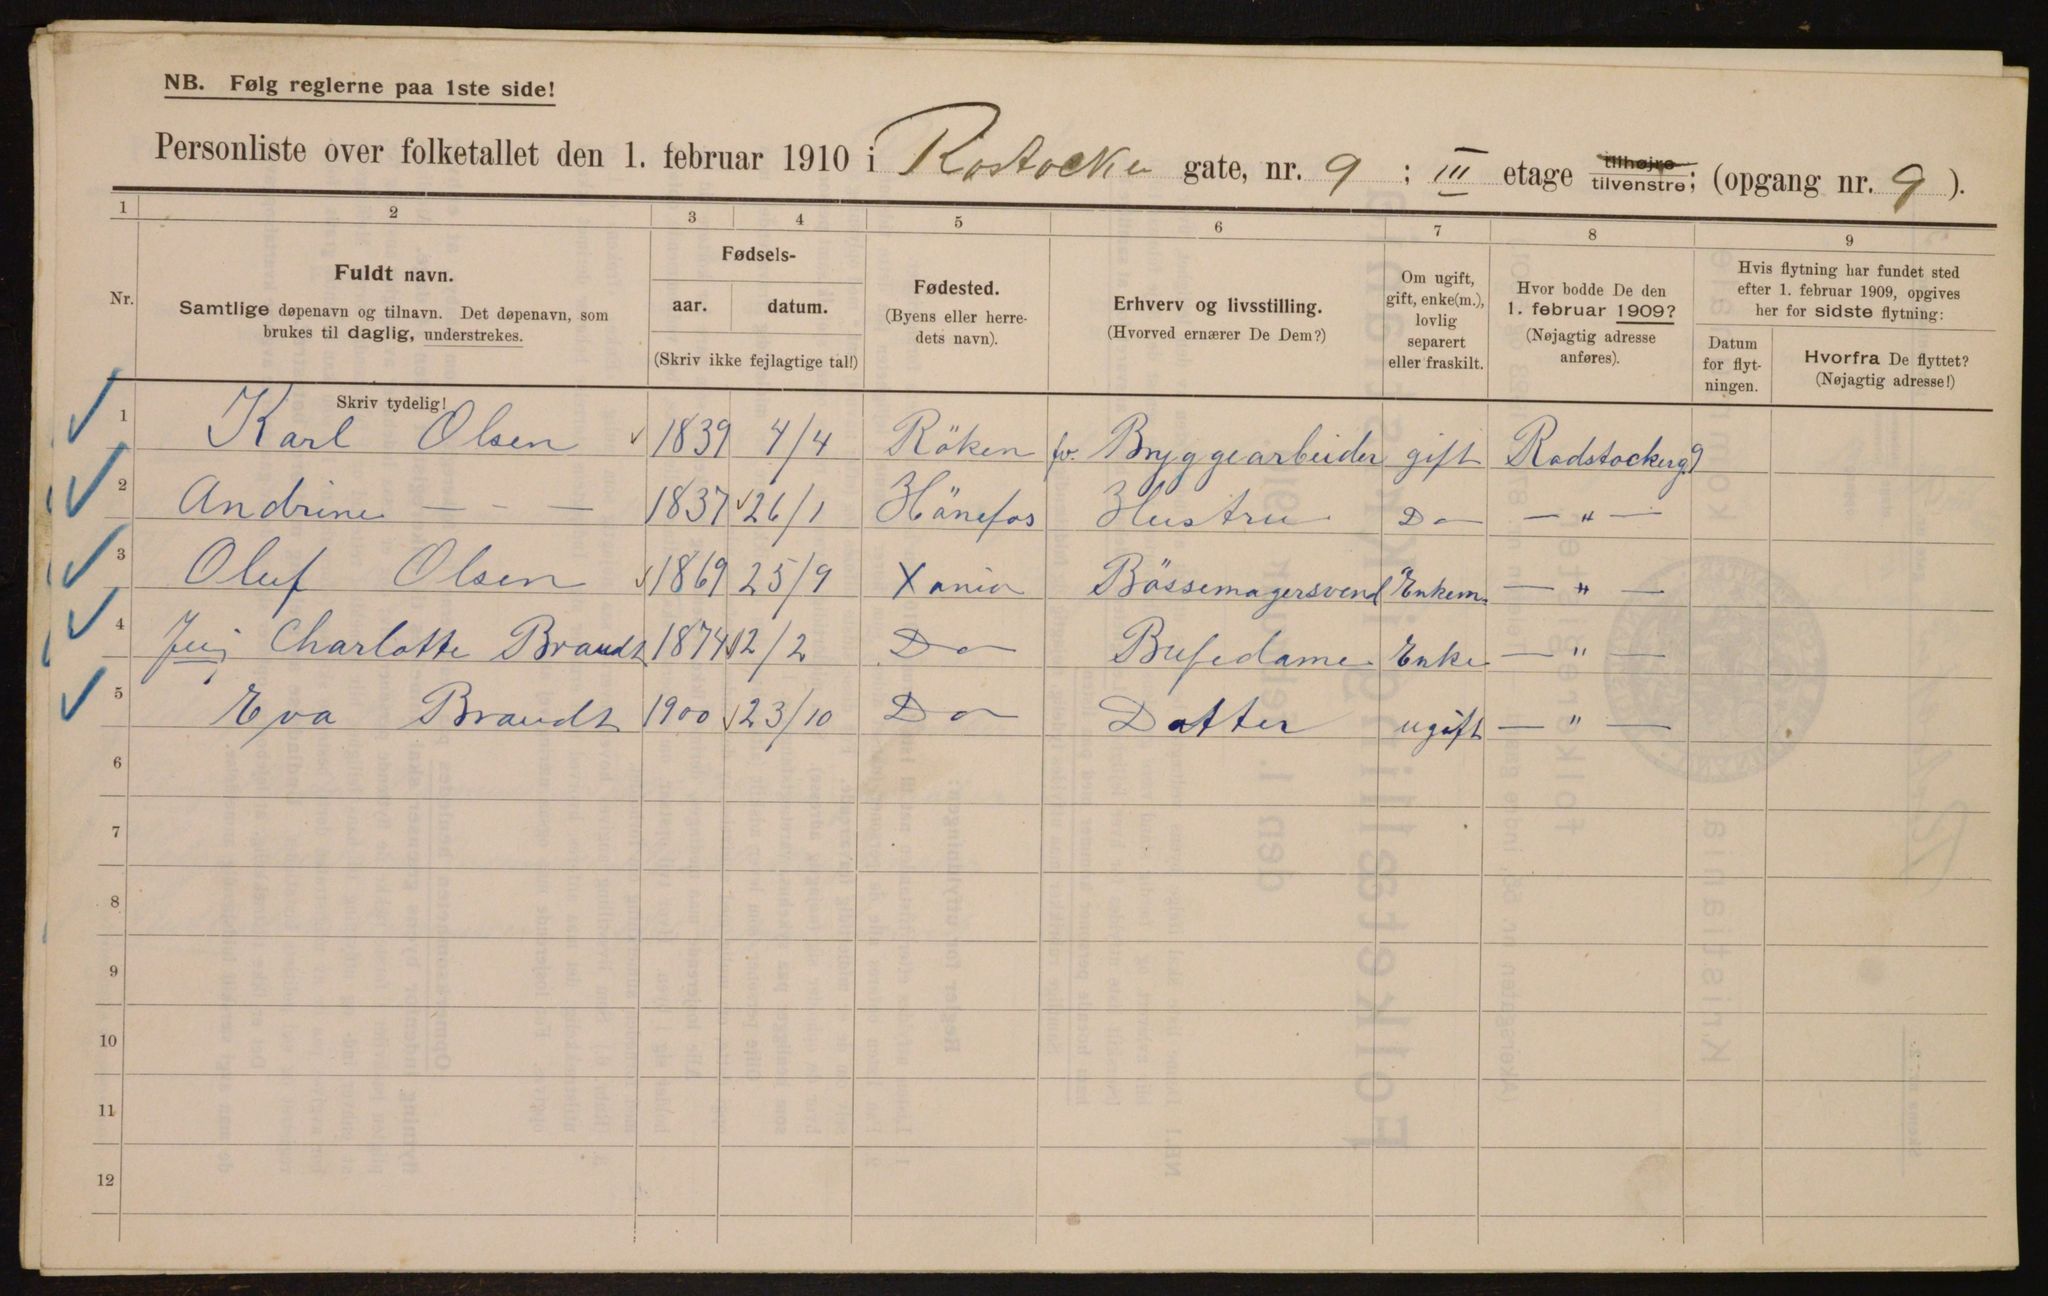 NB. Følg reglerne paa 1ste side!
Personliste over folketallet den 1. februar 1910 i Rostocker gate, nr. 9 ; III etage tilhøjre tilvenstre; (opgang nr. 9 ).
1 2 3 4 5 6 7 8 9
Nr.
Fuldt navn.
Samtlige døpenavn og tilnavn. Det døpenavn, som
brukes til daglig, understrekes.
Fødsels-
aar. datum.
(Skriv ikke fejlagtige tal!)
Fødested.
(Byens eller herre-
dets navn).
Erhverv og livsstilling.
(Hvorved ernærer De Dem?)
Om ugift,
gift, enke(m.),
lovlig
separert
eller fraskilt.
Hvor bodde De den
1. februar 1909?
(Nøjagtig adresse
anføres).
Hvis flytning har fundet sted
efter 1. februar 1909, opgives
her for sidste flytning:
Datum
for flyt-
ningen.
Hvorfra De flyttet?
(Nøjagtig adresse!)
Skriv tydelig!
1 Karl Olsen 1839 4/4 Röken fv. Bryggearbeider gift Radstockerg 9
2 Andrine — - — 1837 26/1 Hönefos Hustru Do — " —
3 Oluf Olsen 1869 25/9 Xania Bössemagersvend Enkem. — " —
4 Charlotte Brandt 1874 12/2 Do Bufedame Enke — " —
5 Eva Brandt 1900 23/10 Do Datter ugift — " —
6
7
8
9
10
11
12